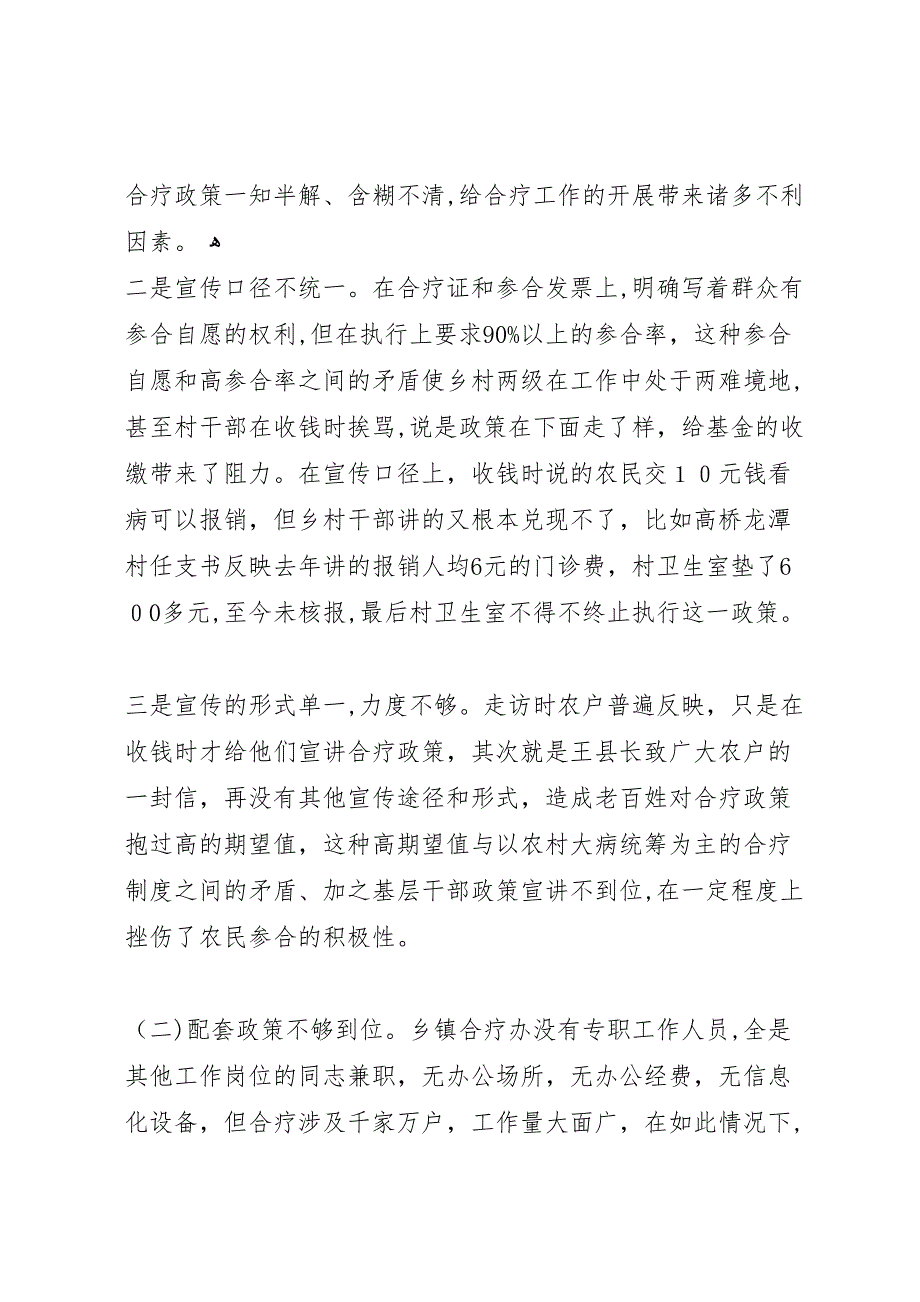 合疗政策一知半解、含糊不清,给合疗工作的开展带来诸多不利
因素。 ﻫ
二是宣传口径不统一。在合疗证和参合发票上,明确写着群众有
参合自愿的权利,但在执行上要求90%以上的参合率，这种参合
自愿和高参合率之间的矛盾使乡村两级在工作中处于两难境地,
甚至村干部在收钱时挨骂,说是政策在下面走了样，给基金的收
缴带来了阻力。在宣传口径上，收钱时说的农民交１０元钱看
病可以报销，但乡村干部讲的又根本兑现不了，比如高桥龙潭
村任支书反映去年讲的报销人均6元的门诊费，村卫生室垫了6
００多元,至今未核报,最后村卫生室不得不终止执行这一政策。
三是宣传的形式单一,力度不够。走访时农户普遍反映，只是在
收钱时才给他们宣讲合疗政策，其次就是王县长致广大农户的
一封信，再没有其他宣传途径和形式，造成老百姓对合疗政策
抱过高的期望值，这种高期望值与以农村大病统筹为主的合疗
制度之间的矛盾、加之基层干部政策宣讲不到位,在一定程度上
挫伤了农民参合的积极性。
（二)配套政策不够到位。乡镇合疗办没有专职工作人员,全是
其他工作岗位的同志兼职，无办公场所，无办公经费，无信息
化设备，但合疗涉及千家万户，工作量大面广，在如此情况下,